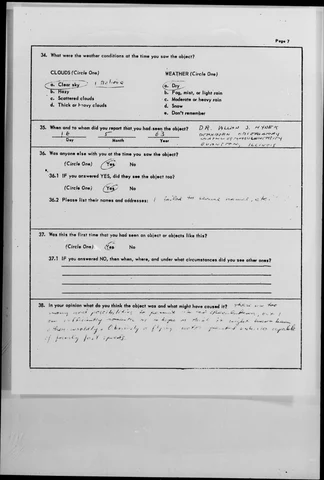 Page 7
34. What were the weather conditions at the time you saw the object?
CLOUDS (Circle One) WEATHER (Circle One)
a. Clear sky I believe a. Dry
b. Hazy b. Fog, mist, or light rain
c. Scattered clouds c. Moderate or heavy rain
d. Thick or heavy clouds d. Snow
e. Don't remember
35. When and to whom did you report that you had seen the object? DR. ALLAN J. HYNEK
18 5 63 DEARBORN OBSERVATORY
Day Month Year NORTHWESTERN UNIVERSITY
EVANSTON, ILLINOIS
36. Was anyone else with you at the time you saw the object?
(Circle One) Yes No
36.1 IF you answered YES, did they see the object too?
(Circle One) Yes No
36.2 Please list their names and addresses: I
37. Was this the first time that you had seen an object or objects like this?
(Circle One) Yes No
37.1 IF you answered NO, then when, where, and under what circumstances did you see other ones?
38. In your opinion what do you think the object was and what might have caused it? there are too
many possibilities to permit
other
of speeds.